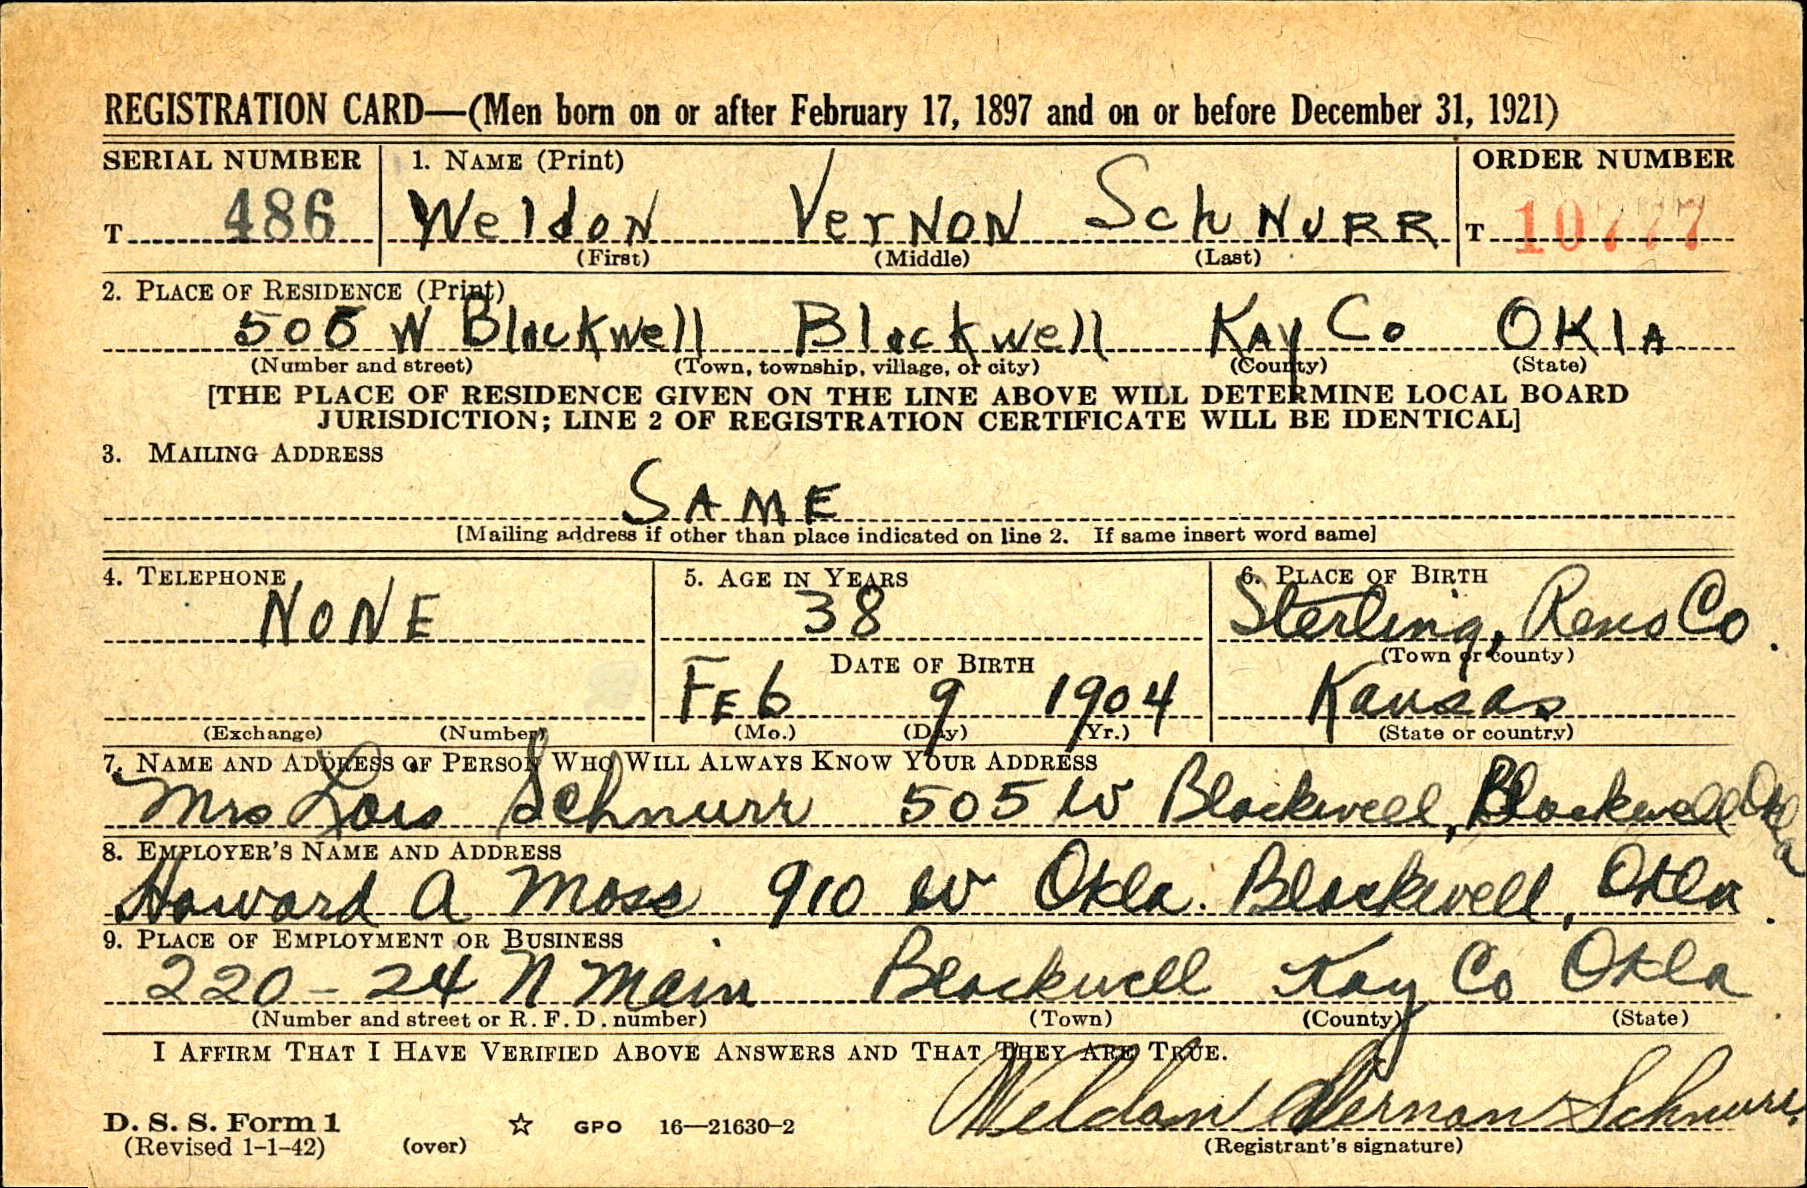 REGISTRATION CARD—(Men born on or after February 17, 1897 and on or before December 31, 1921)
SERIAL NUMBER 1. NAME (Print) ORDER NUMBER
T 486 Weldon Vernon Schnurr T 10777
(First) (Middle) (Last)
2. PLACE OF RESIDENCE (Print)
505 W Blackwell Blackwell Kay Co OKlA
(Number and street) (Town, township, village, or city) (County) (State)
[THE PLACE OF RESIDENCE GIVEN ON THE LINE ABOVE WILL DETERMINE LOCAL BOARD
JURISDICTION; LINE 2 OF REGISTRATION CERTIFICATE WILL BE IDENTICAL]
3. MAILING ADDRESS
SAME
[Mailing address if other than place indicated on line 2. If same insert word same]
4. TELEPHONE 5. AGE IN YEARS 6. PLACE OF BIRTH
NONE 38 Sterling, Reno Co.
DATE OF BIRTH (Town or county)
Feb 9 1904 Kansas
(Exchange) (Number) (Mo.) (Day) (Yr.) (State or country)
7. NAME AND ADDRESS OF PERSON WHO WILL ALWAYS KNOW YOUR ADDRESS
Mrs Lois Schnurr 505 W Blackwell, Blackwell Okla
8. EMPLOYER'S NAME AND ADDRESS
Howard A Moss 910 W Okla. Blackwell, Okla.
9. PLACE OF EMPLOYMENT OR BUSINESS
220-24 N Main Blackwell Kay Co Okla
(Number and street or R. F. D. number) (Town) (County) (State)
I AFFIRM THAT I HAVE VERIFIED ABOVE ANSWERS AND THAT THEY ARE TRUE.
Weldon Vernon Schnurr
D. S. S. Form 1 ☆ GPO 16—21630-2
(Revised 1-1-42) (over) (Registrant's signature)